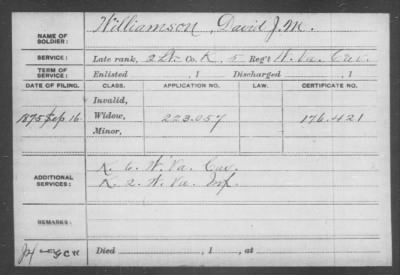 NAME OF SOLDIER: Williamson, David J. M.
SERVICE: Late rank, 2 Lt. Co. K, 5 Reg't W. Va. Cav.
TERM OF SERVICE: Enlisted , 1 Discharged , 1
DATE OF FILING. CLASS. APPLICATION NO. LAW. CERTIFICATE NO.
Invalid,
1875 Sep 16 Widow, 223.057 176.421
Minor,
ADDITIONAL SERVICES: K. 6. W. Va. Cav.
K. 2. W. Va. Inf.
REMARKS:
Died , 1 , at